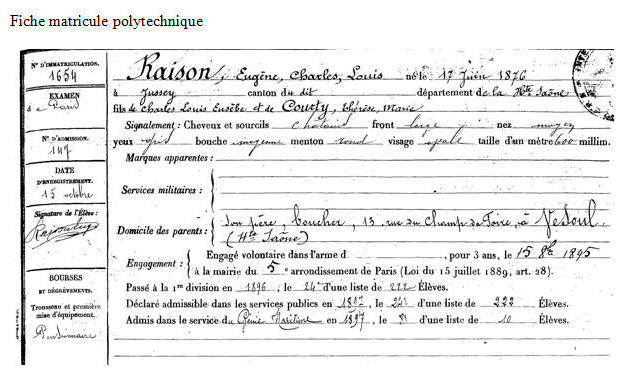 Fiche matricule polytechnique
N° D'IMMATRICULATION.
1654
EXAMEN
à Paris
N° D'ADMISSION.
147
DATE
D'ENREGISTREMENT.
15 octobre
Signature de l'Élève :
BOURSES
ET DÉGRÈVEMENTS.
Trousseau et première
mise d'équipement.
Pensionnaire
Raison, Eugène, Charles, Louis né le 17 Juin 1876
à Jussey canton du dit département de la Hte Saône
fils de Charles Louis Eusèbe et de Courty, Thérèse, Marie
Signalement : Cheveux et sourcils châtains front large nez moyen
yeux gris bouche moyenne menton rond visage ovale taille d'un mètre 600 millim.
Marques apparentes :
Services militaires :
Domicile des parents : Son père, 13, rue du Champ de Foire, à Vesoul
(Hte Saône)
Engagement : Engagé volontaire dans l'arme d , pour 3 ans, le 15 8bre 1895
à la mairie du 5e arrondissement de Paris (Loi du 15 juillet 1889, art. 28).
Passé à la 1re division en 1896, le 24e d'une liste de 222 Élèves.
Déclaré admissible dans les services publics en 1897, le 24e d'une liste de 222 Élèves.
Admis dans le service du Génie Maritime en 1897, le d'une liste de 10 Élèves.